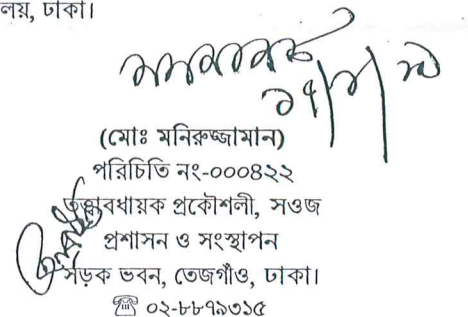 লয়, ঢাকা।
(মোঃ মনিরুজ্জামান)
পরিচিতি নং-০০০৪২২
তত্ত্বাবধায়ক প্রকৌশলী, সওজ
প্রশাসন ও সংস্থাপন
সড়ক ভবন, তেজগাঁও, ঢাকা।
☎ ০২-৮৮৭৯৩১৫